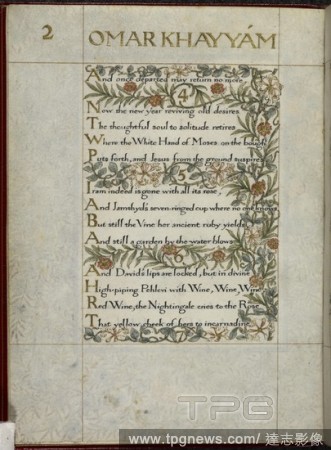 2 OMAR KHAYYÁM
And once departed may return no more.
4
Now the new year reviving old desires
The thoughtful soul to solitude retires
Where the White Hand of Moses on the bough
Puts forth, and Jesus from the ground suspires
5
Iram indeed is gone with all its rose,
And Jamshyd's seven-ringed cup where no one knows
But still the Vine her ancient ruby yields
And still a garden by the water blows
6
And David's lips are locked, but in divine
High-piping Pehlevi with Wine, Wine, Wine
Red Wine, the Nightingale cries to the Rose
That yellow cheek of hers to incarnadine
7
TPG
www.tpgnews.com/達志影像